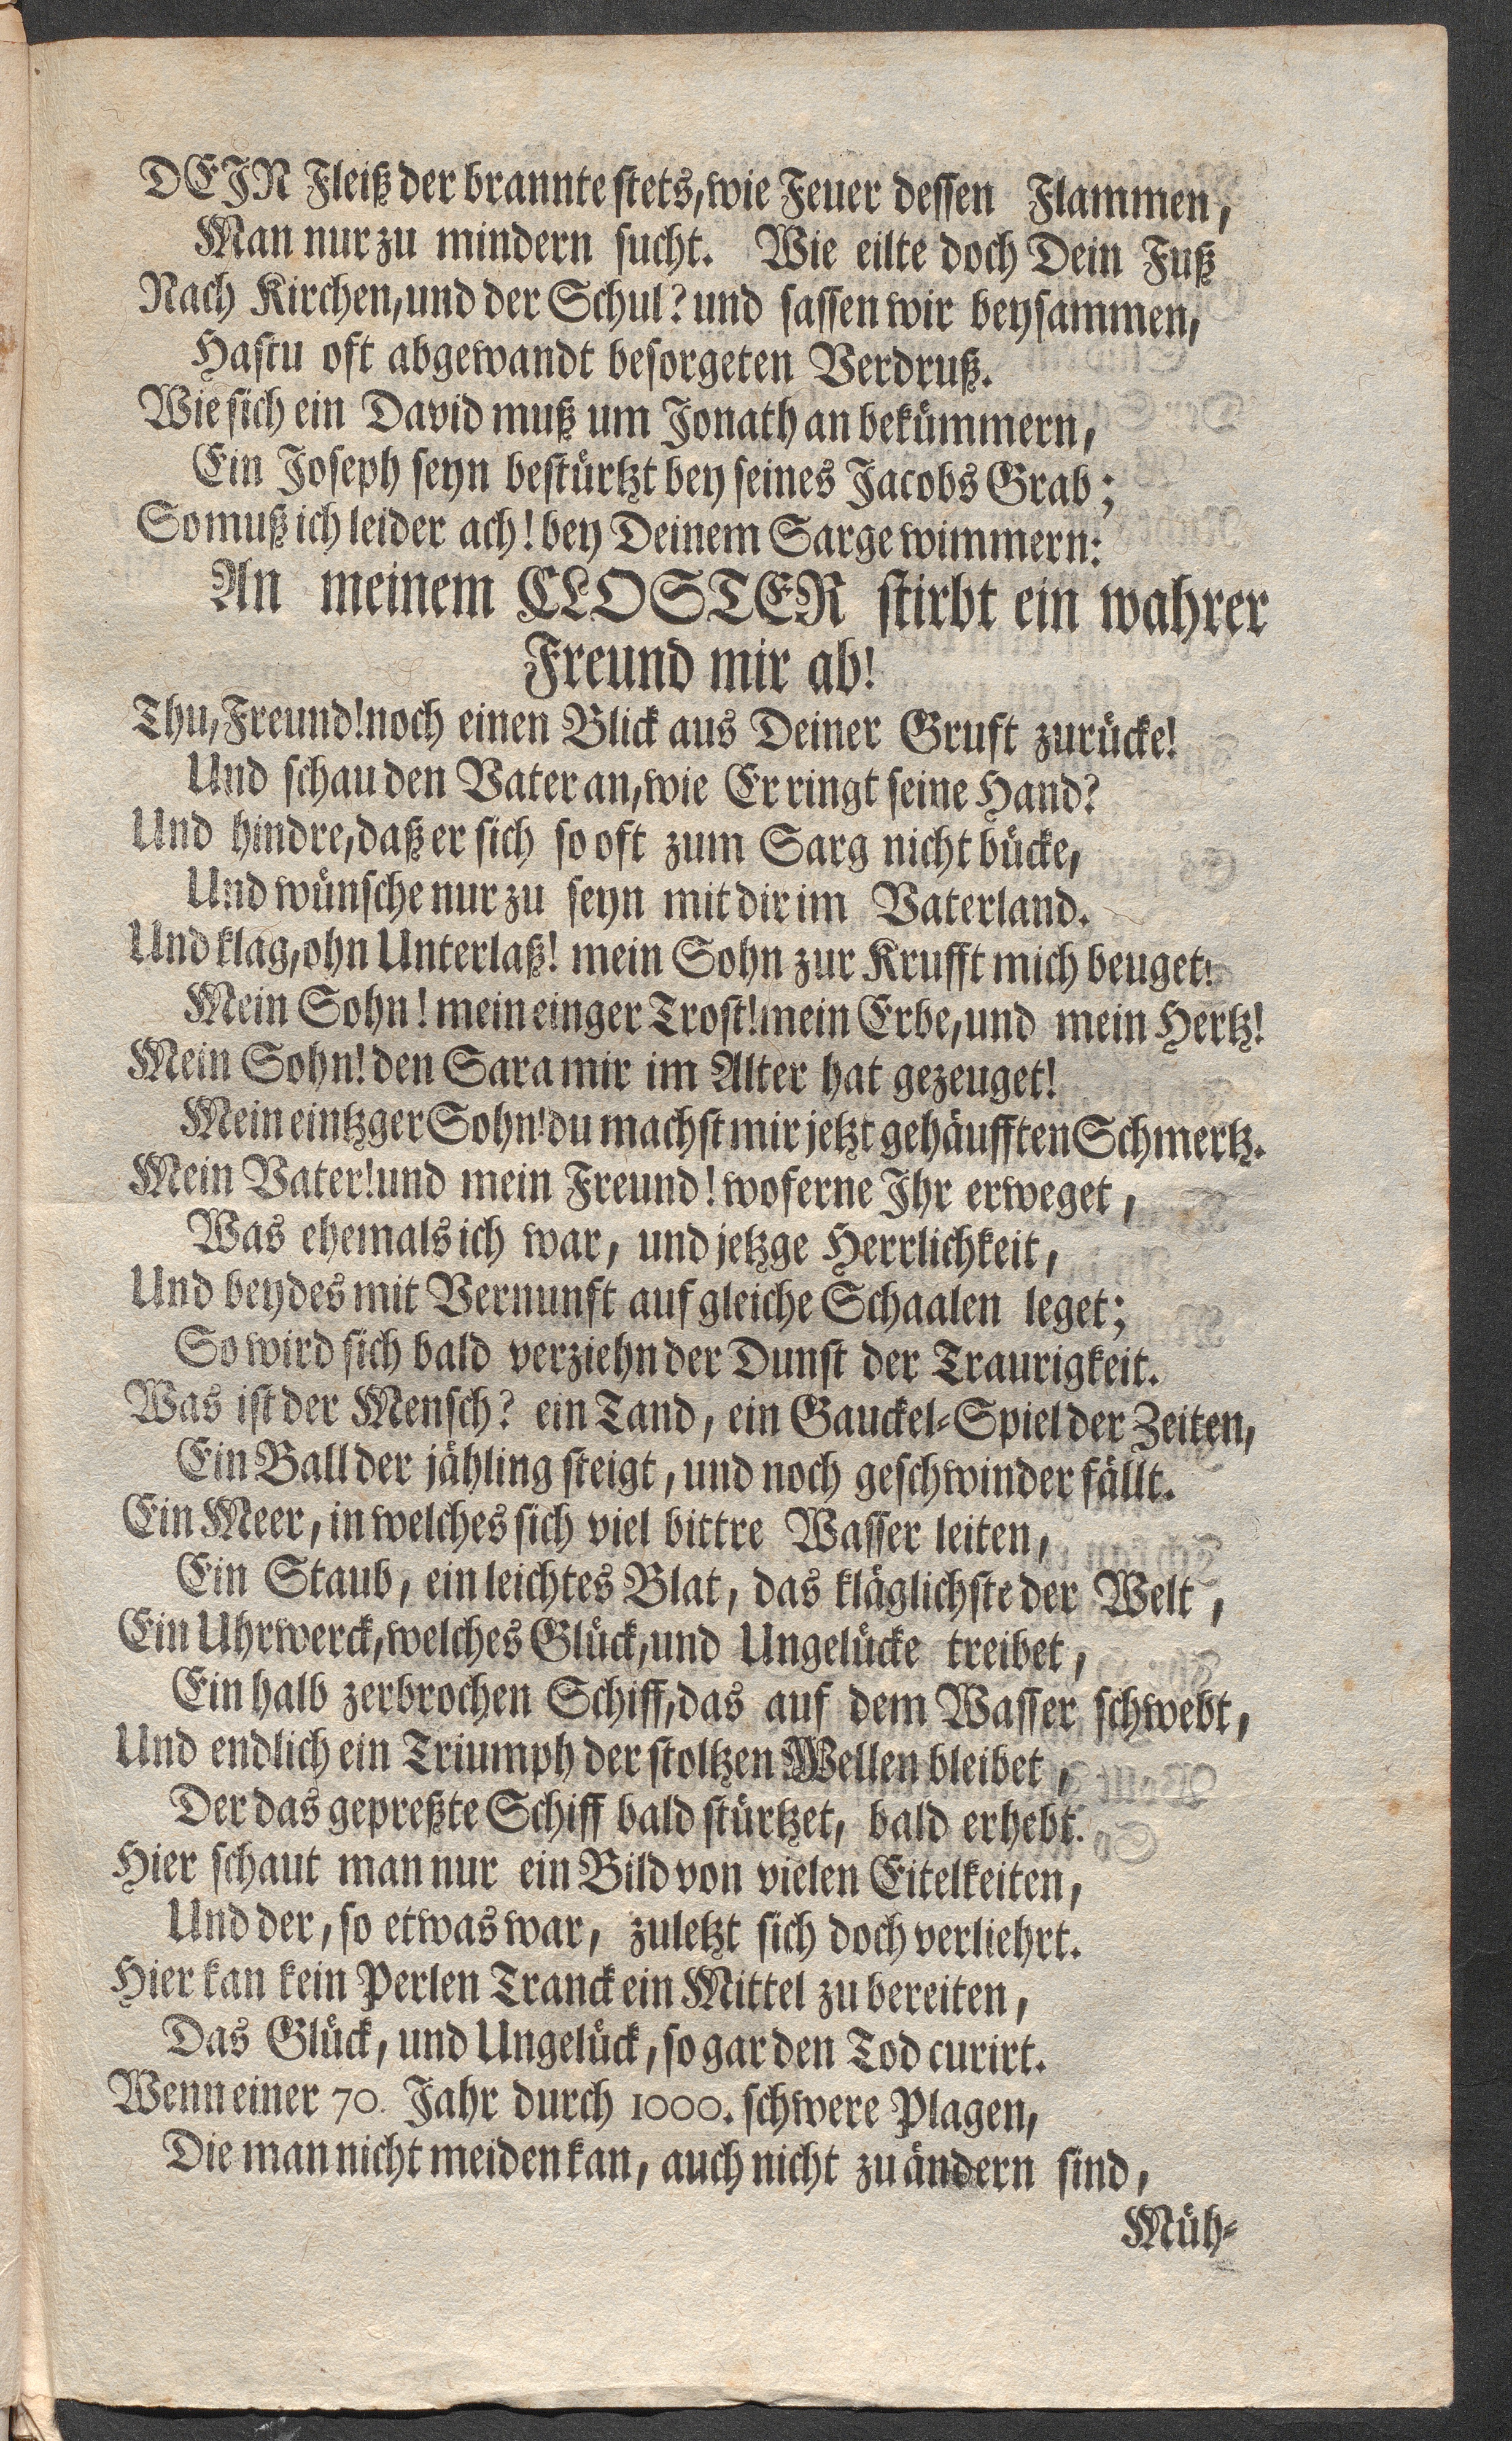 DEIN Fleiß der brannte stets, wie Feuer dessen Flammen,
Man nur zu mindern sucht. Wie eilte doch Dein Fuß
Nach Kirchen, und der Schul? und sassen wir beysammen,
Hastu oft abgewandt besorgeten Verdruß.
Wie sich ein David muß um Jonathan bekümmern,
Ein Joseph seyn bestürtzt bey seines Jacobs Grab;
So muß ich leider ach! bey Deinem Sarge wimmern:
An meinem CLOSTER stirbt ein wahrer
Freund mir ab!
Thu, Freund! noch einen Blick aus Deiner Gruft zurücke!
Und schau den Vater an, wie Er ringt seine Hand?
Und hindre, daß er sich so oft zum Sarg nicht bücke,
Und wünsche nur zu seyn mit dir im Vaterland.
Und klag, ohn Unterlaß! mein Sohn zur Krufft mich beuget!
Mein Sohn! mein einger Trost! mein Erbe, und mein Hertz!
Mein Sohn! den Sara mir im Alter hat gezeuget!
Mein eintzger Sohn! du machst mir jetzt gehäufften Schmertz.
Mein Vater! und mein Freund! woferne Ihr erweget,
Was ehemals ich war, und jetzge Herrlichkeit,
Und beydes mit Vernunft auf gleiche Schaalen leget;
So wird sich bald verziehn der Dunst der Traurigkeit.
Was ist der Mensch? ein Tand, ein Gauckel-Spiel der Zeiten,
Ein Ball der jähling steigt, und noch geschwinder fällt.
Ein Meer, in welches sich viel bittre Wasser leiten,
Ein Staub, ein leichtes Blat, das kläglichste der Welt,
Ein Uhrwerck, welches Glück, und Ungelücke treibet,
Ein halb zerbrochen Schiff, das auf dem Wasser schwebt,
Und endlich ein Triumph der stoltzen Wellen bleibet,
Der das gepreßte Schiff bald stürtzet, bald erhebt.
Hier schaut man nur ein Bild von vielen Eitelkeiten,
Und der, so etwas war, zuletzt sich doch verliehrt.
Hier kan kein Perlen Tranck ein Mittel zu bereiten,
Das Glück, und Ungelück, so gar den Tod curirt.
Wenn einer 70. Jahr durch 1000. schwere Plagen,
Die man nicht meiden kan, auch nicht zu ändern sind,
Müh-